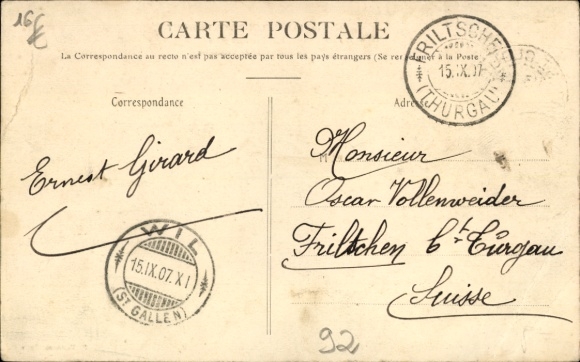 16 £
CARTE POSTALE
La Correspondance au recto n'est pas acceptée par tous les pays étrangers (Se renseigner à la Poste
FRILTSCHEN
15.IX.07
(THURGAU)
Correspondance
Adresse
Ernest Girard
Monsieur
Oscar Vollenweider
Friltschen Ct Tûrgau
Suisse
WIL
15.IX.07.XI
(ST GALLEN)
92